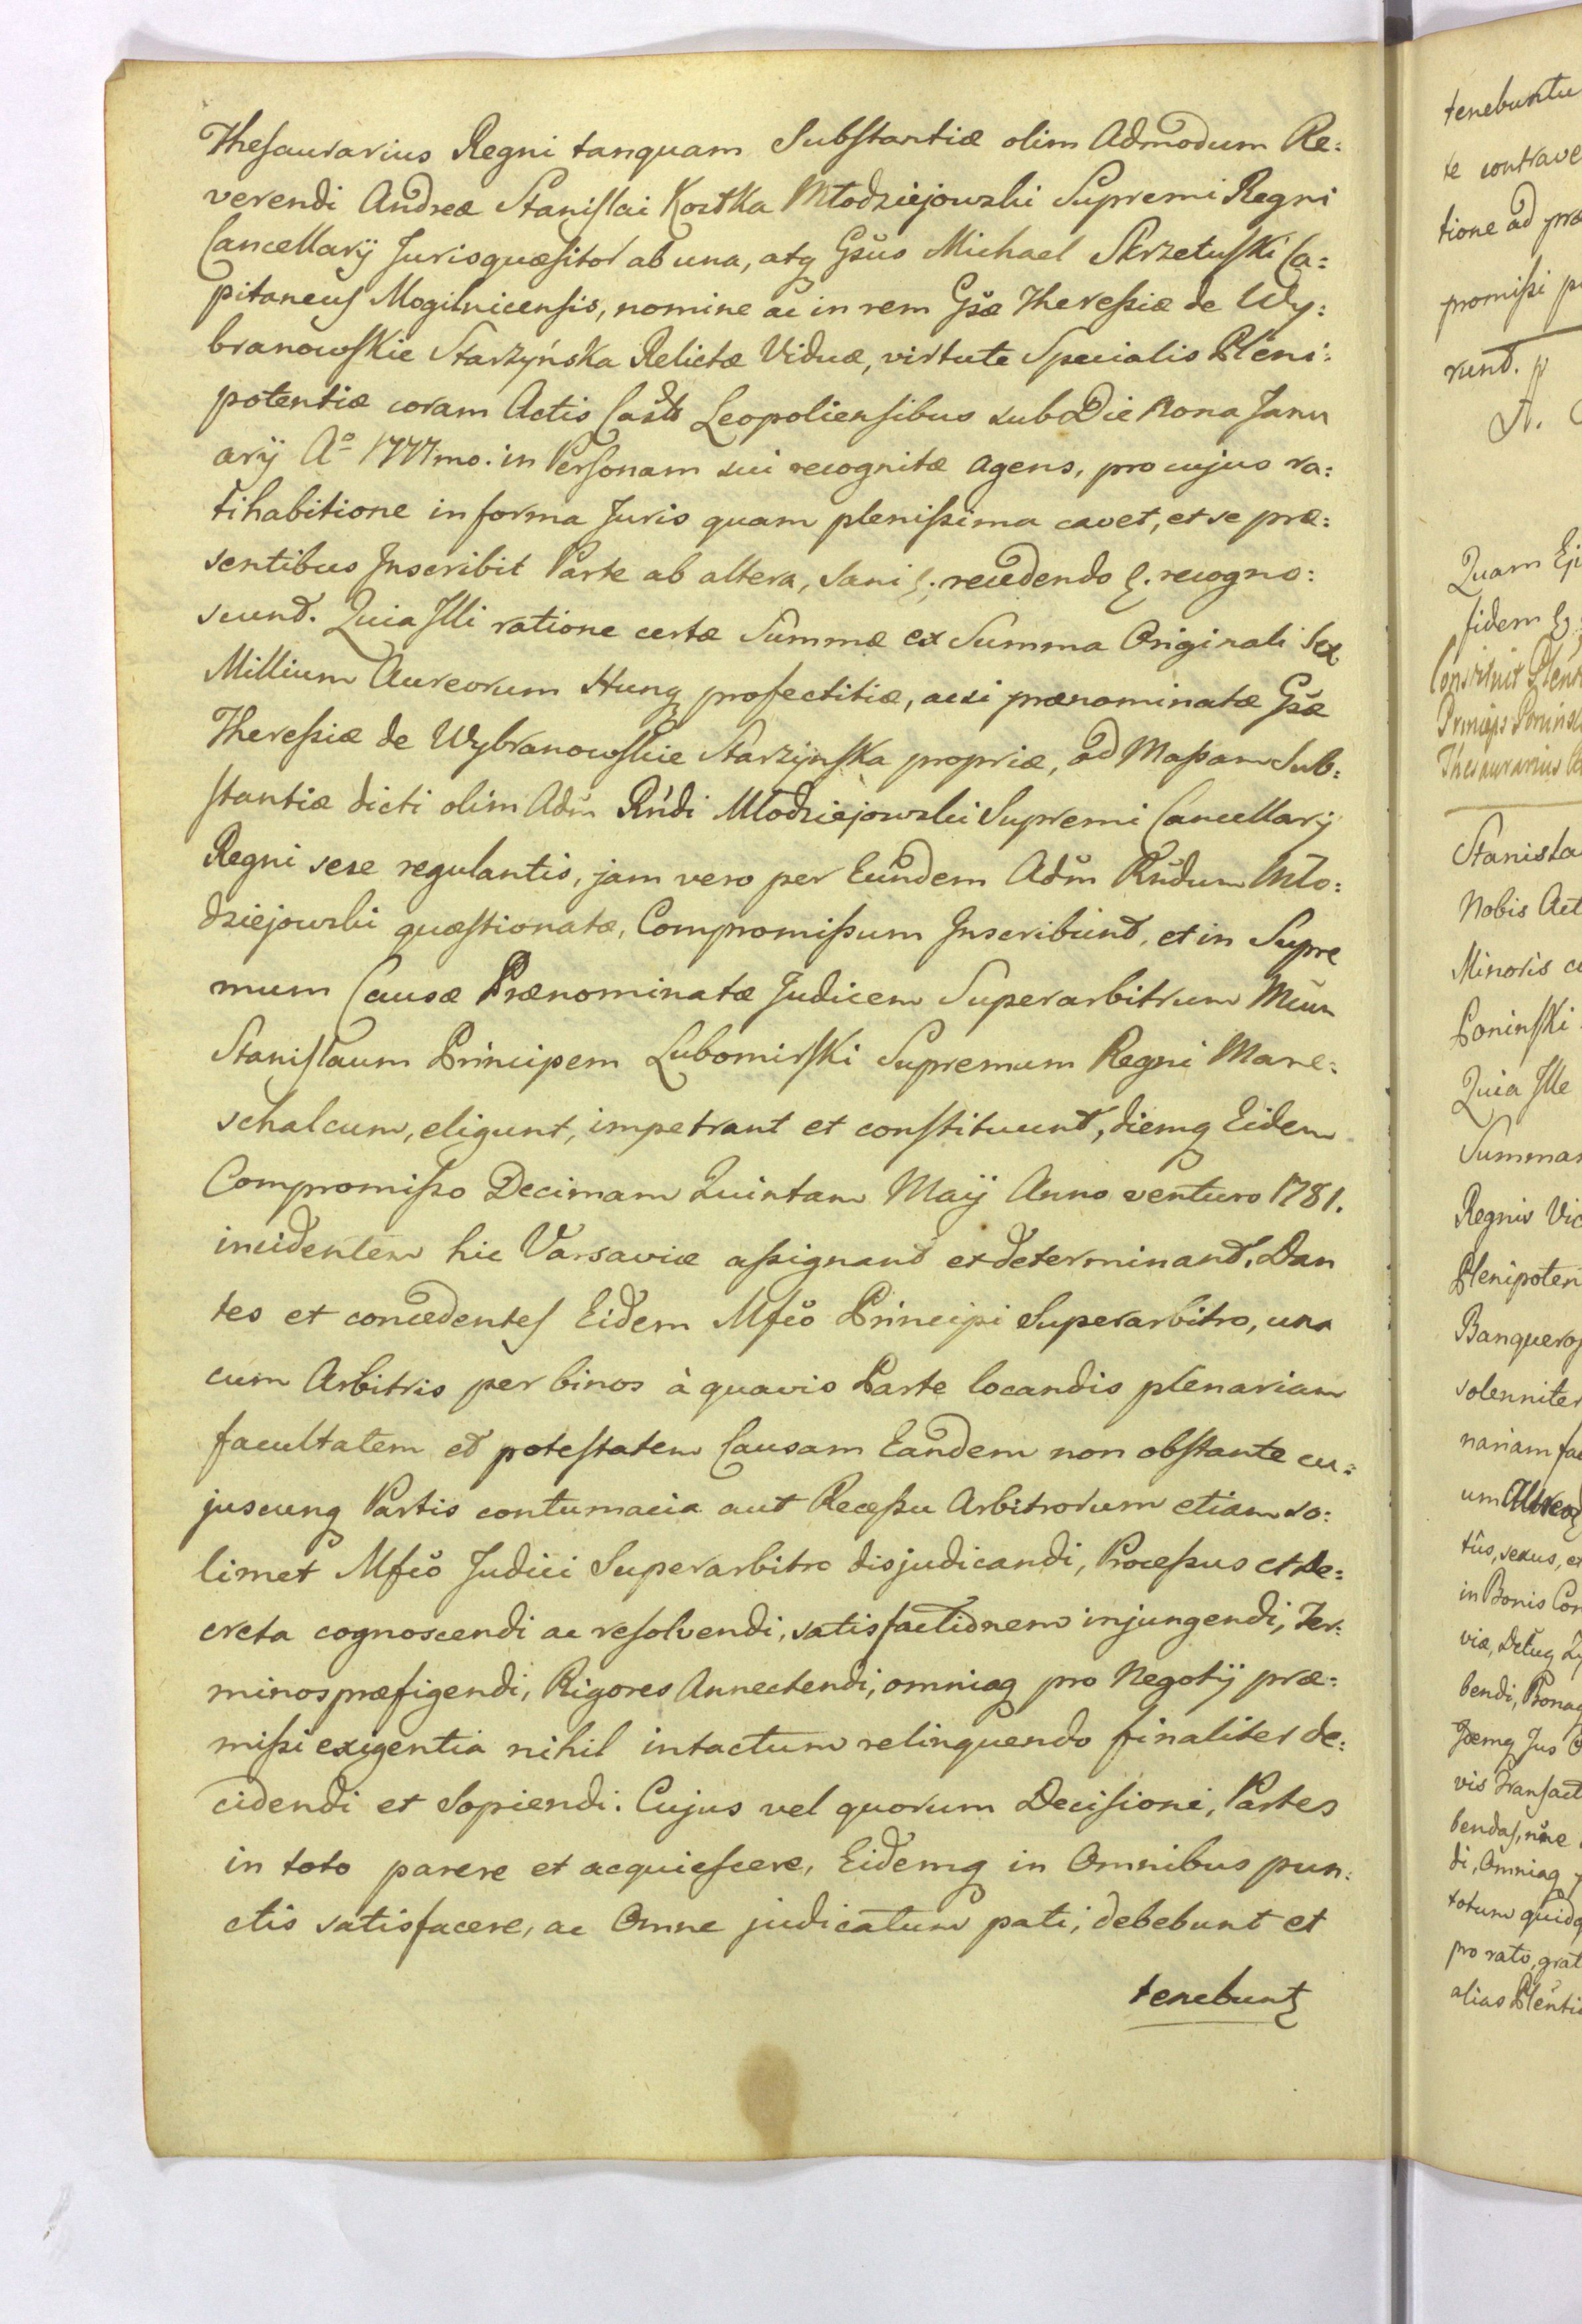 Thesaurarius Regni tanquam Substantiæ olim Admodum Re:
verendi Andreæ Stanislai Kostka Młodziejowski Supremi Regni
Cancellarij Jurisquæsitor ab una, atq Gsũs Michael Skrzetuski Ca:
pitaneus Mogilnicensis, nomine ac in rem Gsæ Theressiæ de Wy:
branowskie Starzyńska Relictæ Viduæ, virtute Specialis Pleni:
potentiæ coram Actis Casts Leopoliensibus sub Die Nona Janu
arij A° 1777mo. in Personam sui recognitæ agens, pro cujus ra:
tihabitione in forma Juris quam plenissima cavet, et se præ:
sentibus Inscribit Parte ab altera, sani &. recedendo &. recogno:
scund. Quia Illi ratione certæ Summæ ex Summa Originali Sex
Millium Aureorum Hung profectitiæ, acsi prænominatæ Gsæ
Theressiæ de Wybranowskie Starzynska propriæ, ad Massam Sub:
stantiæ dicti olim Adm̃ Rñdi Młodziejowski Supremi Cancellarij
Regni sese regulantis, jam vero per Eundem Adm̃ Rñdum Mło:
dziejowski quæstionatæ, Compromissum Inscribunt, et in Supre
mum Causæ Prænominatæ Judicem Superarbitrum Mcũm
Stanislaum Principem Lubomirski Supremum Regni Mare:
schalcum, eligunt, impetrant et constituunt, diemq Eidem
Compromisso Decimam Quintam Maij Anno venturo 1781.
incidentem hic Varsaviæ assignant et determinant. Dan
tes et concedentes Eidem Mfcõ Principi Superarbitro, una
cum Arbitris per binos à quavis Parte locandis plenariam
facultatem et potestatem Causam Eandem non obstante cu:
juscunq Partis contumacia aut Recessu Arbitrorum etiam so:
limet Mfcõ Judici Superarbitro disjudicandi, Processus et De:
creta cognoscendi ac resolvendi, satisfactionem injungendi, Ter:
minos præfigendi, Rigores Annectendi, omniaq pro Negotij præ:
missi exigentia nihil intactum relinquendo finaliter de:
cidendi et sopiendi. Cujus vel quorum Decisioni, Partes
in toto parere et acquiescere, Eidemq in Omnibus pun:
ctis satisfacere, ac Omne judicatum pati, debebunt et
tenebunt
tenebuntu
te contrave
tione ad præ
promissi p
runt. p
A.
Quam Ej
fidem &
Constituit Pleni
Princeps Poninsk
Thesaurarius
Stanisla
Nobis Act
Minoris
Poninski
Quia Ille
Summam
Regnis Vic
Plenipoten
Banqueros
solenniter
nariam fac
um
tus, sexus, et
in Bonis Con
viæ,
bendi, Bonaq
Jus
vis Transact
bendas, nñe
di, Omniaq
totum quidq
pro rato, grat
alias